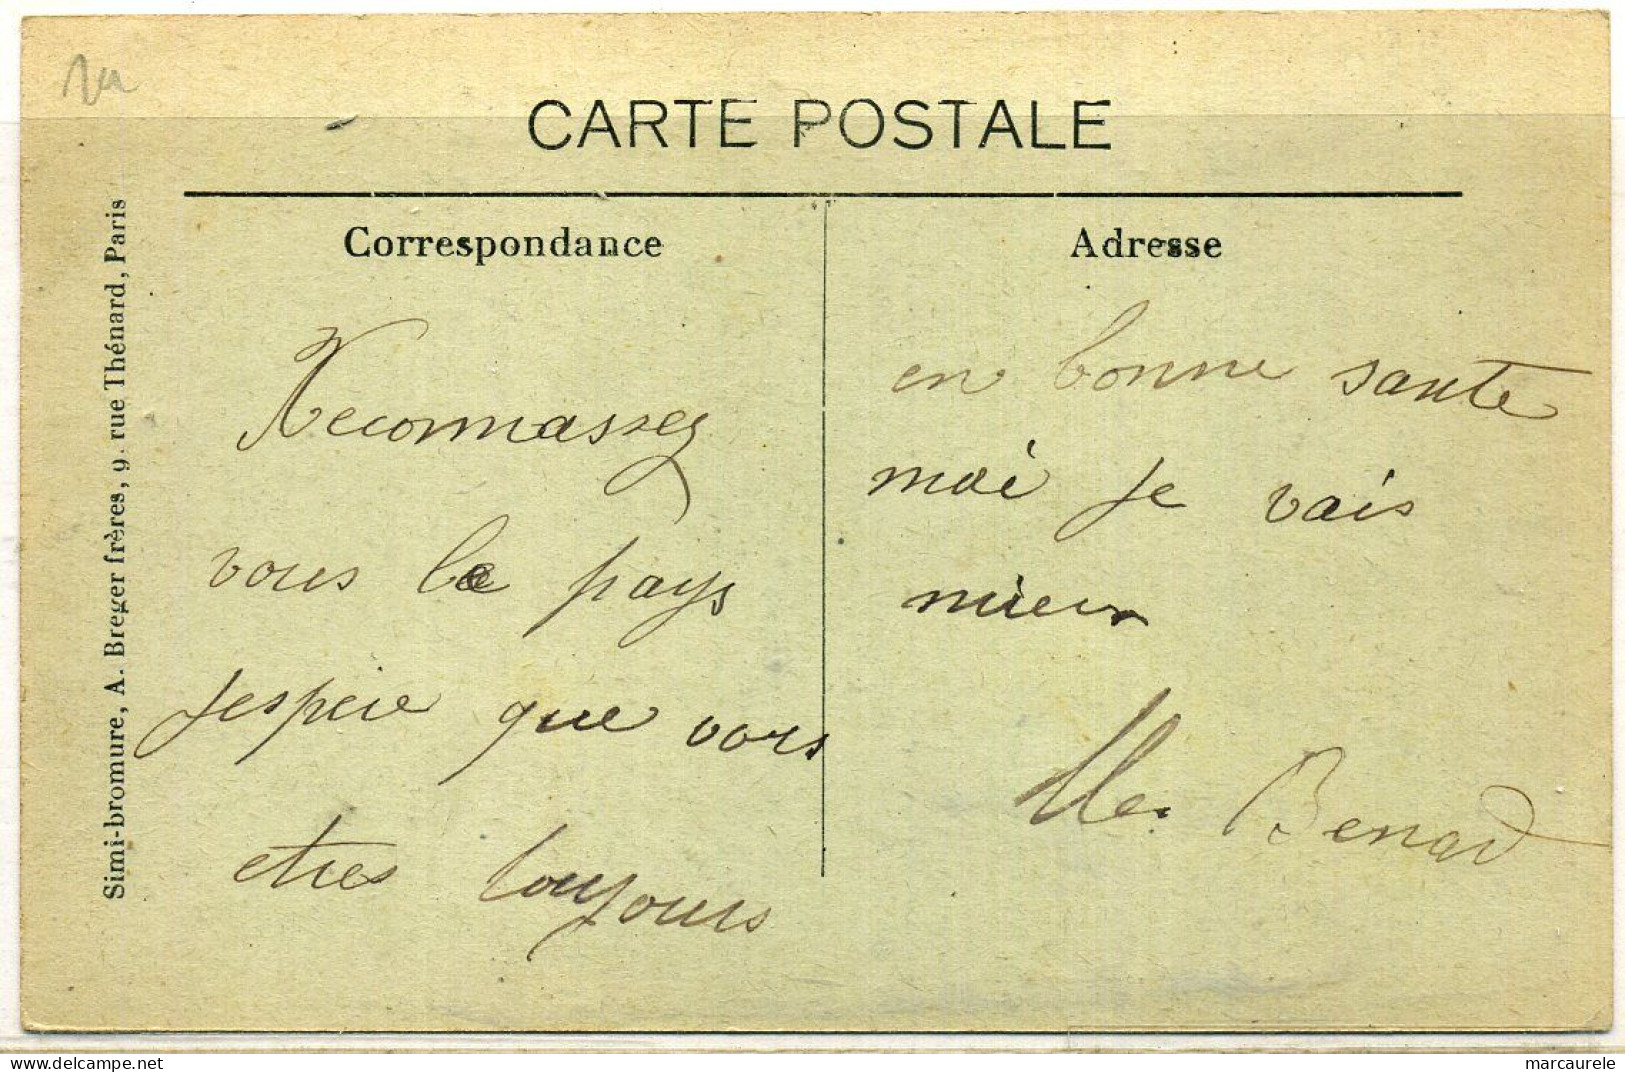 CARTE POSTALE
Correspondance
Reconnassez
vous le pays
jespere que vous
etres toujours
Adresse
en bonne sante
moi je vais
mieux
Benard
Simi-bromure, A. Breger frères, 9. rue Thénard, Paris
delcampe.net
marcaurele